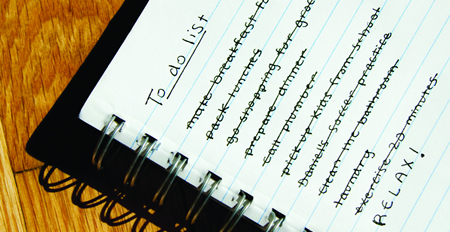 To do list
make breakfast fo
pack lunches
go shopping for groc
prepare dinner
call plumber
pick up kids from school
Daniel's soccer practice
clean the bathroom
laundry
exercise 20 minutes
RELAX!